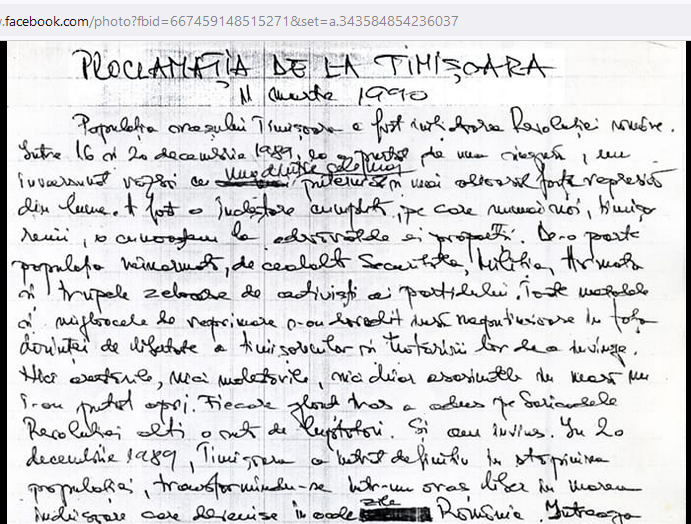 .facebook.com/photo?fbid=667459148515271&set=a.343584854236037
PROCLAMAȚIA DE LA TIMIȘOARA
11 martie 1990
Populația orașului Timișoara a fost inițiatoarea Revoluției române.
Între 16 și 20 decembrie 1989, ea a purtat, pe cont propriu, un
unul dintre cele mai
înverșunat război cu puternice și mai odioase forțe represive
din lume. A fost o încleștare cumplită, pe care numai noi, timișo
renii, o cunoaștem la adevăratele ei proporții. De o parte
populația neînarmată, de cealaltă Securitatea, Miliția, Armata
și trupele zeloase de activiști ai partidului. Toate metodele
și mijloacele de reprimare s-au dovedit însă neputincioase în fața
dorinței de libertate a timișorenilor și hotărârii lor de a învinge.
Nici arestările, nici molestările, nici chiar asasinatele în masă nu
i-au putut opri. Fiecare glonț tras a adus pe baricadele
Revoluției alți o sută de luptători. Și am învins. În 20
decembrie 1989, Timișoara a intrat definitiv în stăpânirea
populației, transformându-se într-un oraș liber în marea
zile
închisoare care devenise în acele România. Întreaga